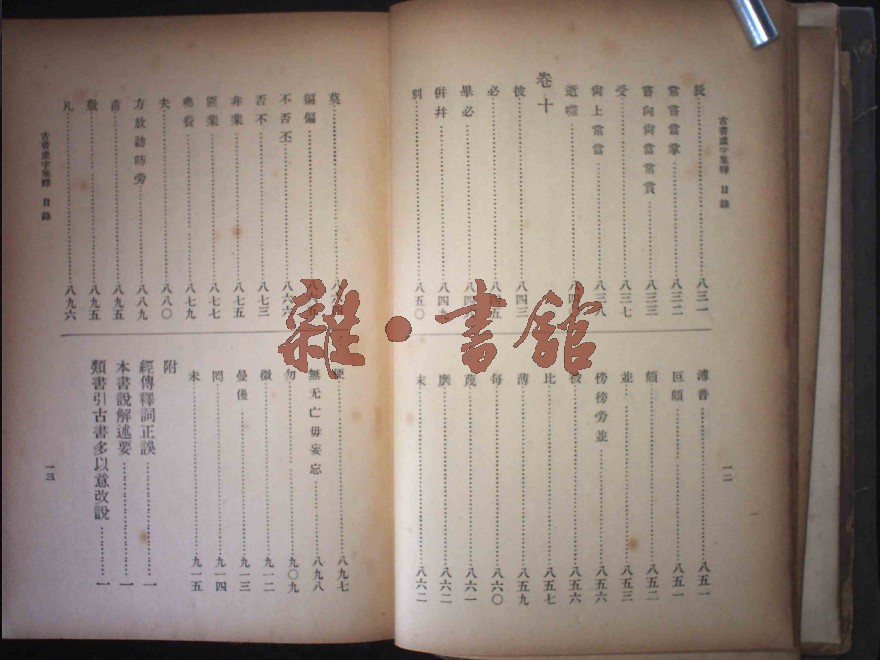 古書虛字集釋 目錄
一二
長 八三一
常嘗當掌 八三二
嘗向尙當常賞 八三三
受 八三七
尙上常當 八三八
逝噬 八四
卷十
彼 八四三
必 八四五
畢必 八四
併幷 八四九
別 八五〇
溥普 八五一
叵頗 八五一
頗 八五二
並 八五三
徬傍旁並 八五六
被 八五六
比 八五七
薄 八五九
每 八六〇
蔑 八六一
末 八六二
莫
偏徧
不否丕 八六六
否不 八七三
非棐 八七五
匪棐 八七七
弗 八七九
夫 八八〇
方放訪昉旁 八八九
甫 八九五
敷 八九五
凡 八九六
古書虛字集釋 目錄
一三
便 八九七
無无亡毋妄忘 八九八
勿 九〇九
微 九一二
曼優 九一三
罔 九一四
未 九一五
附
經傳釋詞正誤 一
本書說解述要 一
類書引古書多以意改說 一
雜·書館